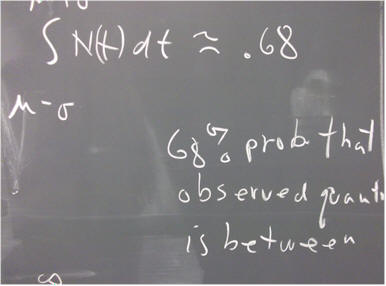 ∫ N(t) dt ≈ .68
μ-σ
68% prob that
observed
is between
∞